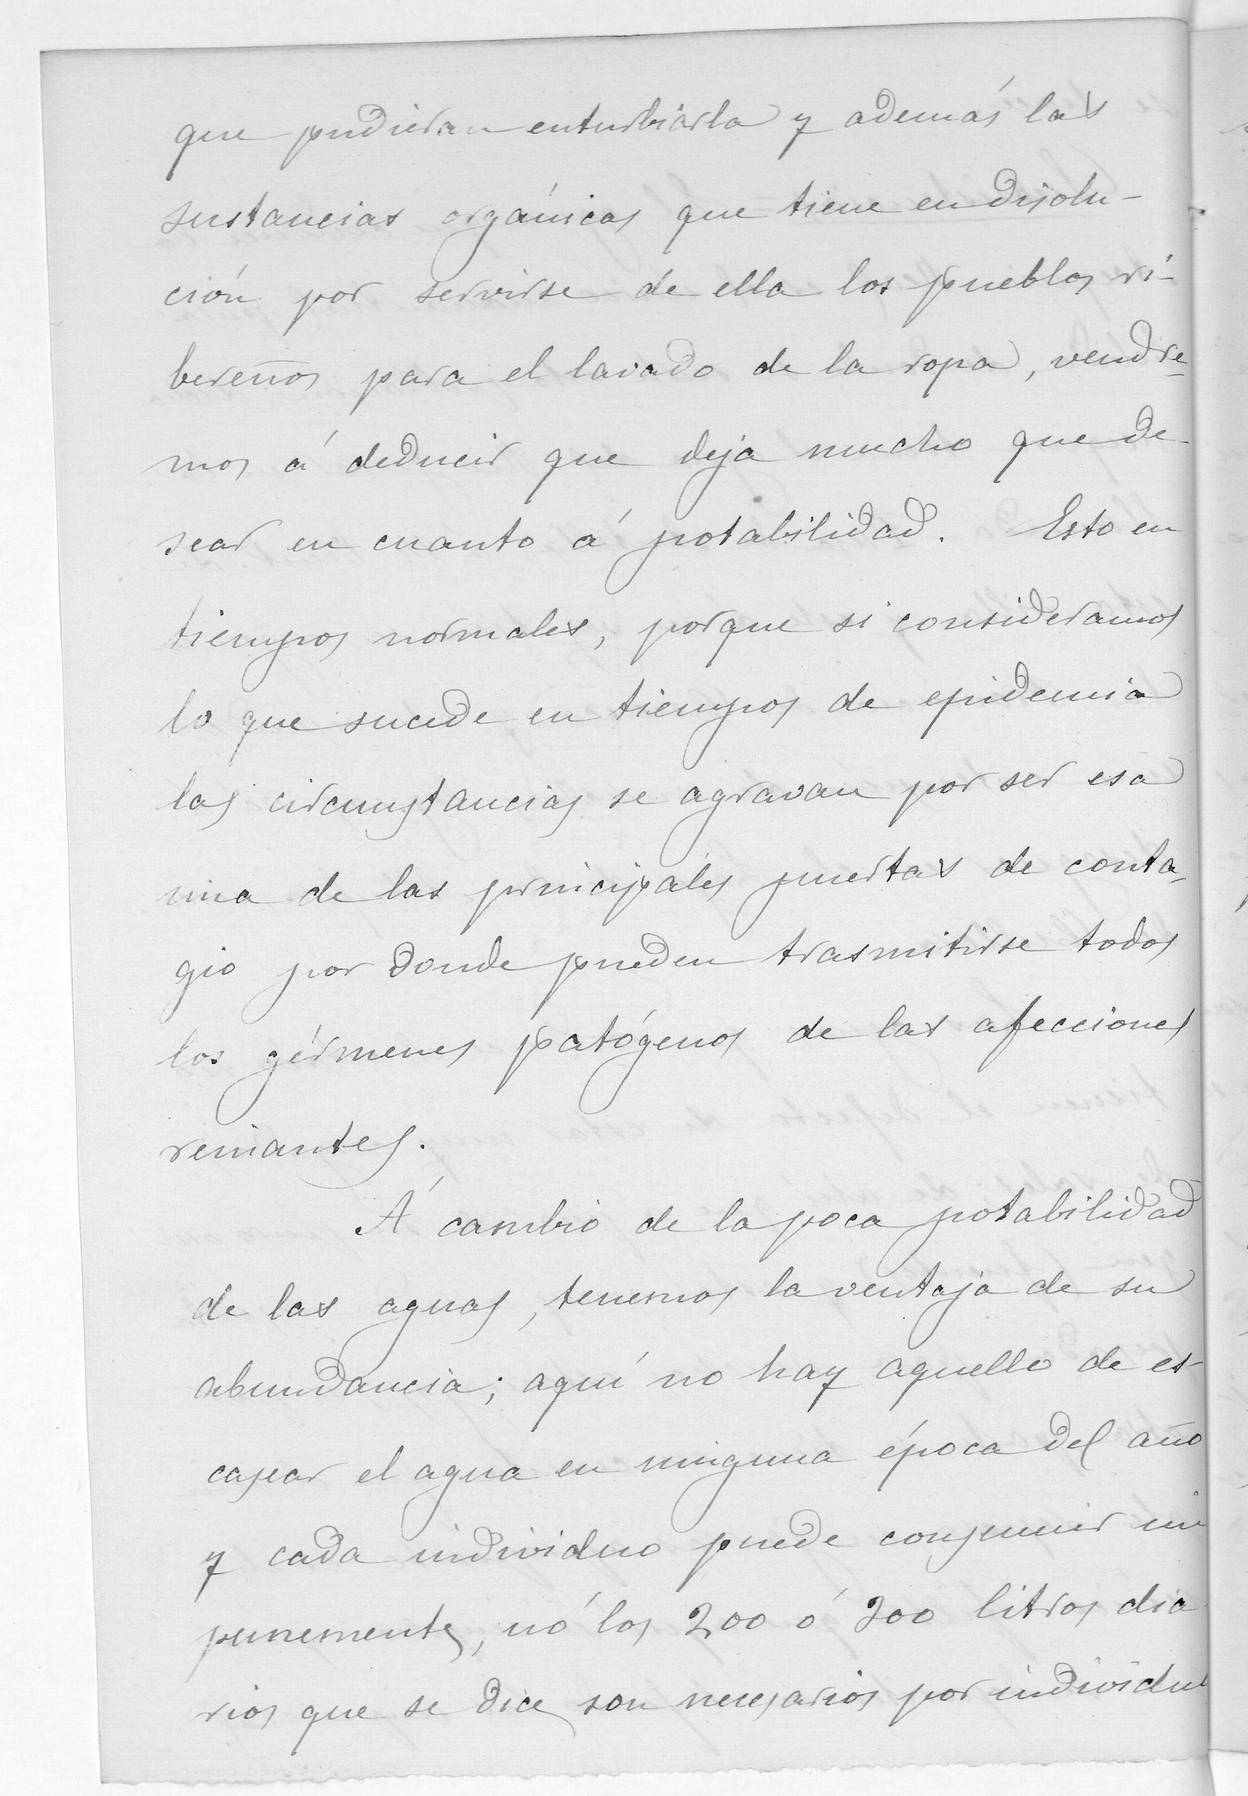 que pudieran enturbiarla y además las
sustancias orgánicas que tiene en disolu-
ción por servirse de ella los pueblos ri-
bereños para el lavado de la ropa, vendre-
mos á deducir que deja mucho que de-
sear en cuanto á potabilidad. Esto en
tiempos normales, porque si consideramos
lo que sucede en tiempos de epidemia
las circunstancias se agravan por ser esa
una de las principales puertas de conta-
gio por donde pueden trasmitirse todos
los gérmenes patógenos de las afecciones
reinantes.
Á cambio de la poca potabilidad
de las aguas, tenemos la ventaja de su
abundancia; aquí no hay aquello de es-
casear el agua en ninguna época del año
y cada individuo puede consumir im
punemente, nó los 200 ó 300 litros dia
rios que se dice son necesarios por individuo